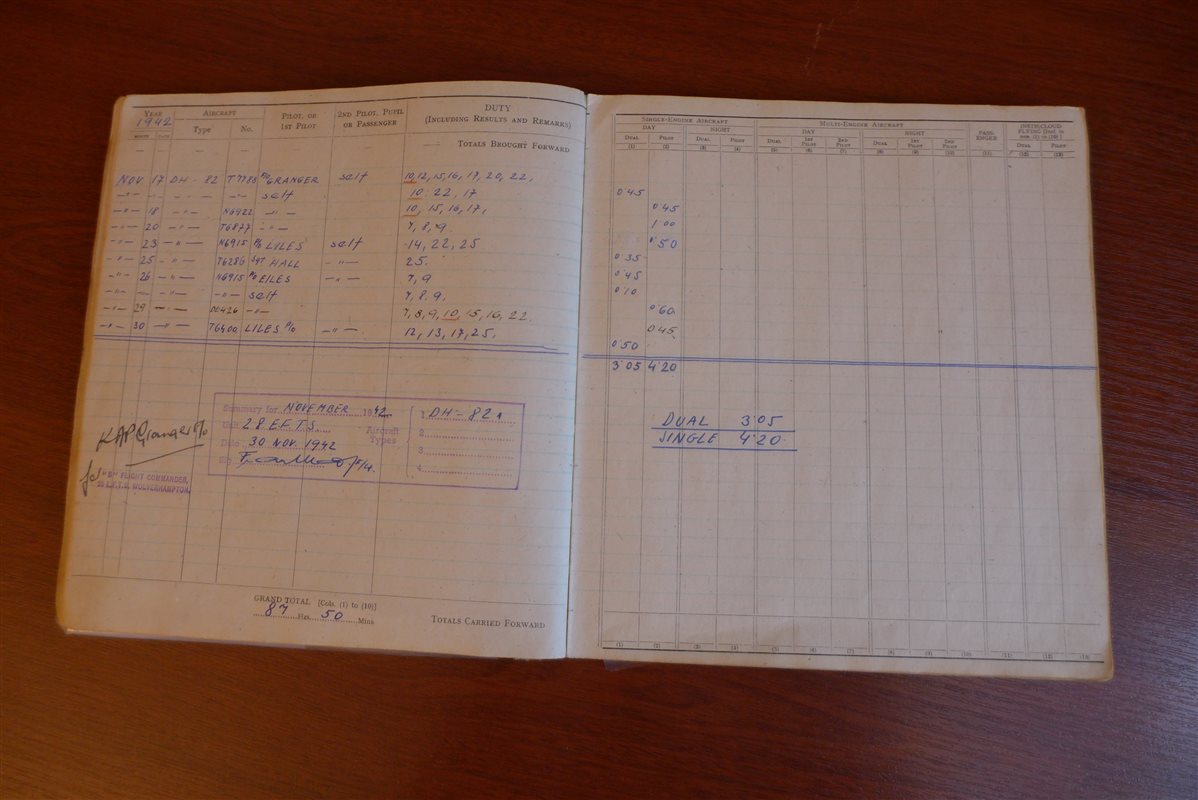 YEAR AIRCRAFT PILOT, OR 1ST PILOT 2ND PILOT, PUPIL OR PASSENGER DUTY (INCLUDING RESULTS AND REMARKS)
1942
MONTH DATE Type No.
TOTALS BROUGHT FORWARD
NOV 17 DH - 82 P/O GRANGER self 10,12,15,16,17,20,22,
—"— — — — self 10. 22, 17
—"— 18 —"— N6922 —"— 10, 15, 16, 17,
—"— 20 —"— T6877 —"— 7, 8, 9.
—"— 23 —"— N6915 P/O LILES self 14, 22, 25
—"— 25 —"— T6286 SGT HALL —"— 25.
—"— 26 —"— N6915 P/O —"— 7, 9
—"— — —"— —"— self 7, 8. 9.
—"— 29 —"— —"— 7, 8, 9, 10, 15, 16, 22.
—"— 30 —"— T6400 LILES P/O —"— 12, 13, 17, 25.
Summary for NOVEMBER 1942
Unit 28 E.F.T.S.
Date 30 NOV. 1942
Aircraft Types
1 DH - 82
2
3
4
KAP Granger P/O
for "B" FLIGHT COMMANDER,
28 E.F.T.S. WOLVERHAMPTON.
GRAND TOTAL [Cols. (1) to (10)]
87 Hrs. 50 Mins
TOTALS CARRIED FORWARD
SINGLE-ENGINE AIRCRAFT MULTI-ENGINE AIRCRAFT PASS-ENGER INSTR/CLOUD FLYING [Incl. in cols. (1) to (10)]
DAY NIGHT DAY NIGHT
DUAL PILOT DUAL PILOT DUAL 1ST PILOT 2ND PILOT DUAL 1ST PILOT 2ND PILOT DUAL PILOT
(1) (2) (3) (4) (5) (6) (7) (8) (9) (10) (11) (12) (13)
0'45
0'45
1'00
0'50
0'35
0'45
0'10
0'60
0'45
0'50
3'05 4'20
DUAL 3'05
SINGLE 4'20
(1) (2) (3) (4) (5) (6) (7) (8) (9) (10) (11) (12) (13)